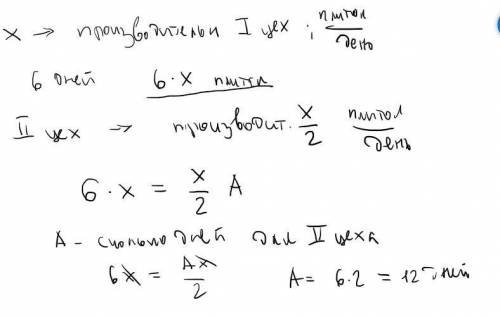 x → производительн I цех ; плитол/день
6 дней 6·x плитол
II цех → производит. x/2 плитол/день
6·x = x/2 A
A – сколько дней для II цеха
6x = Ax/2 A = 6·2 = 12 дней